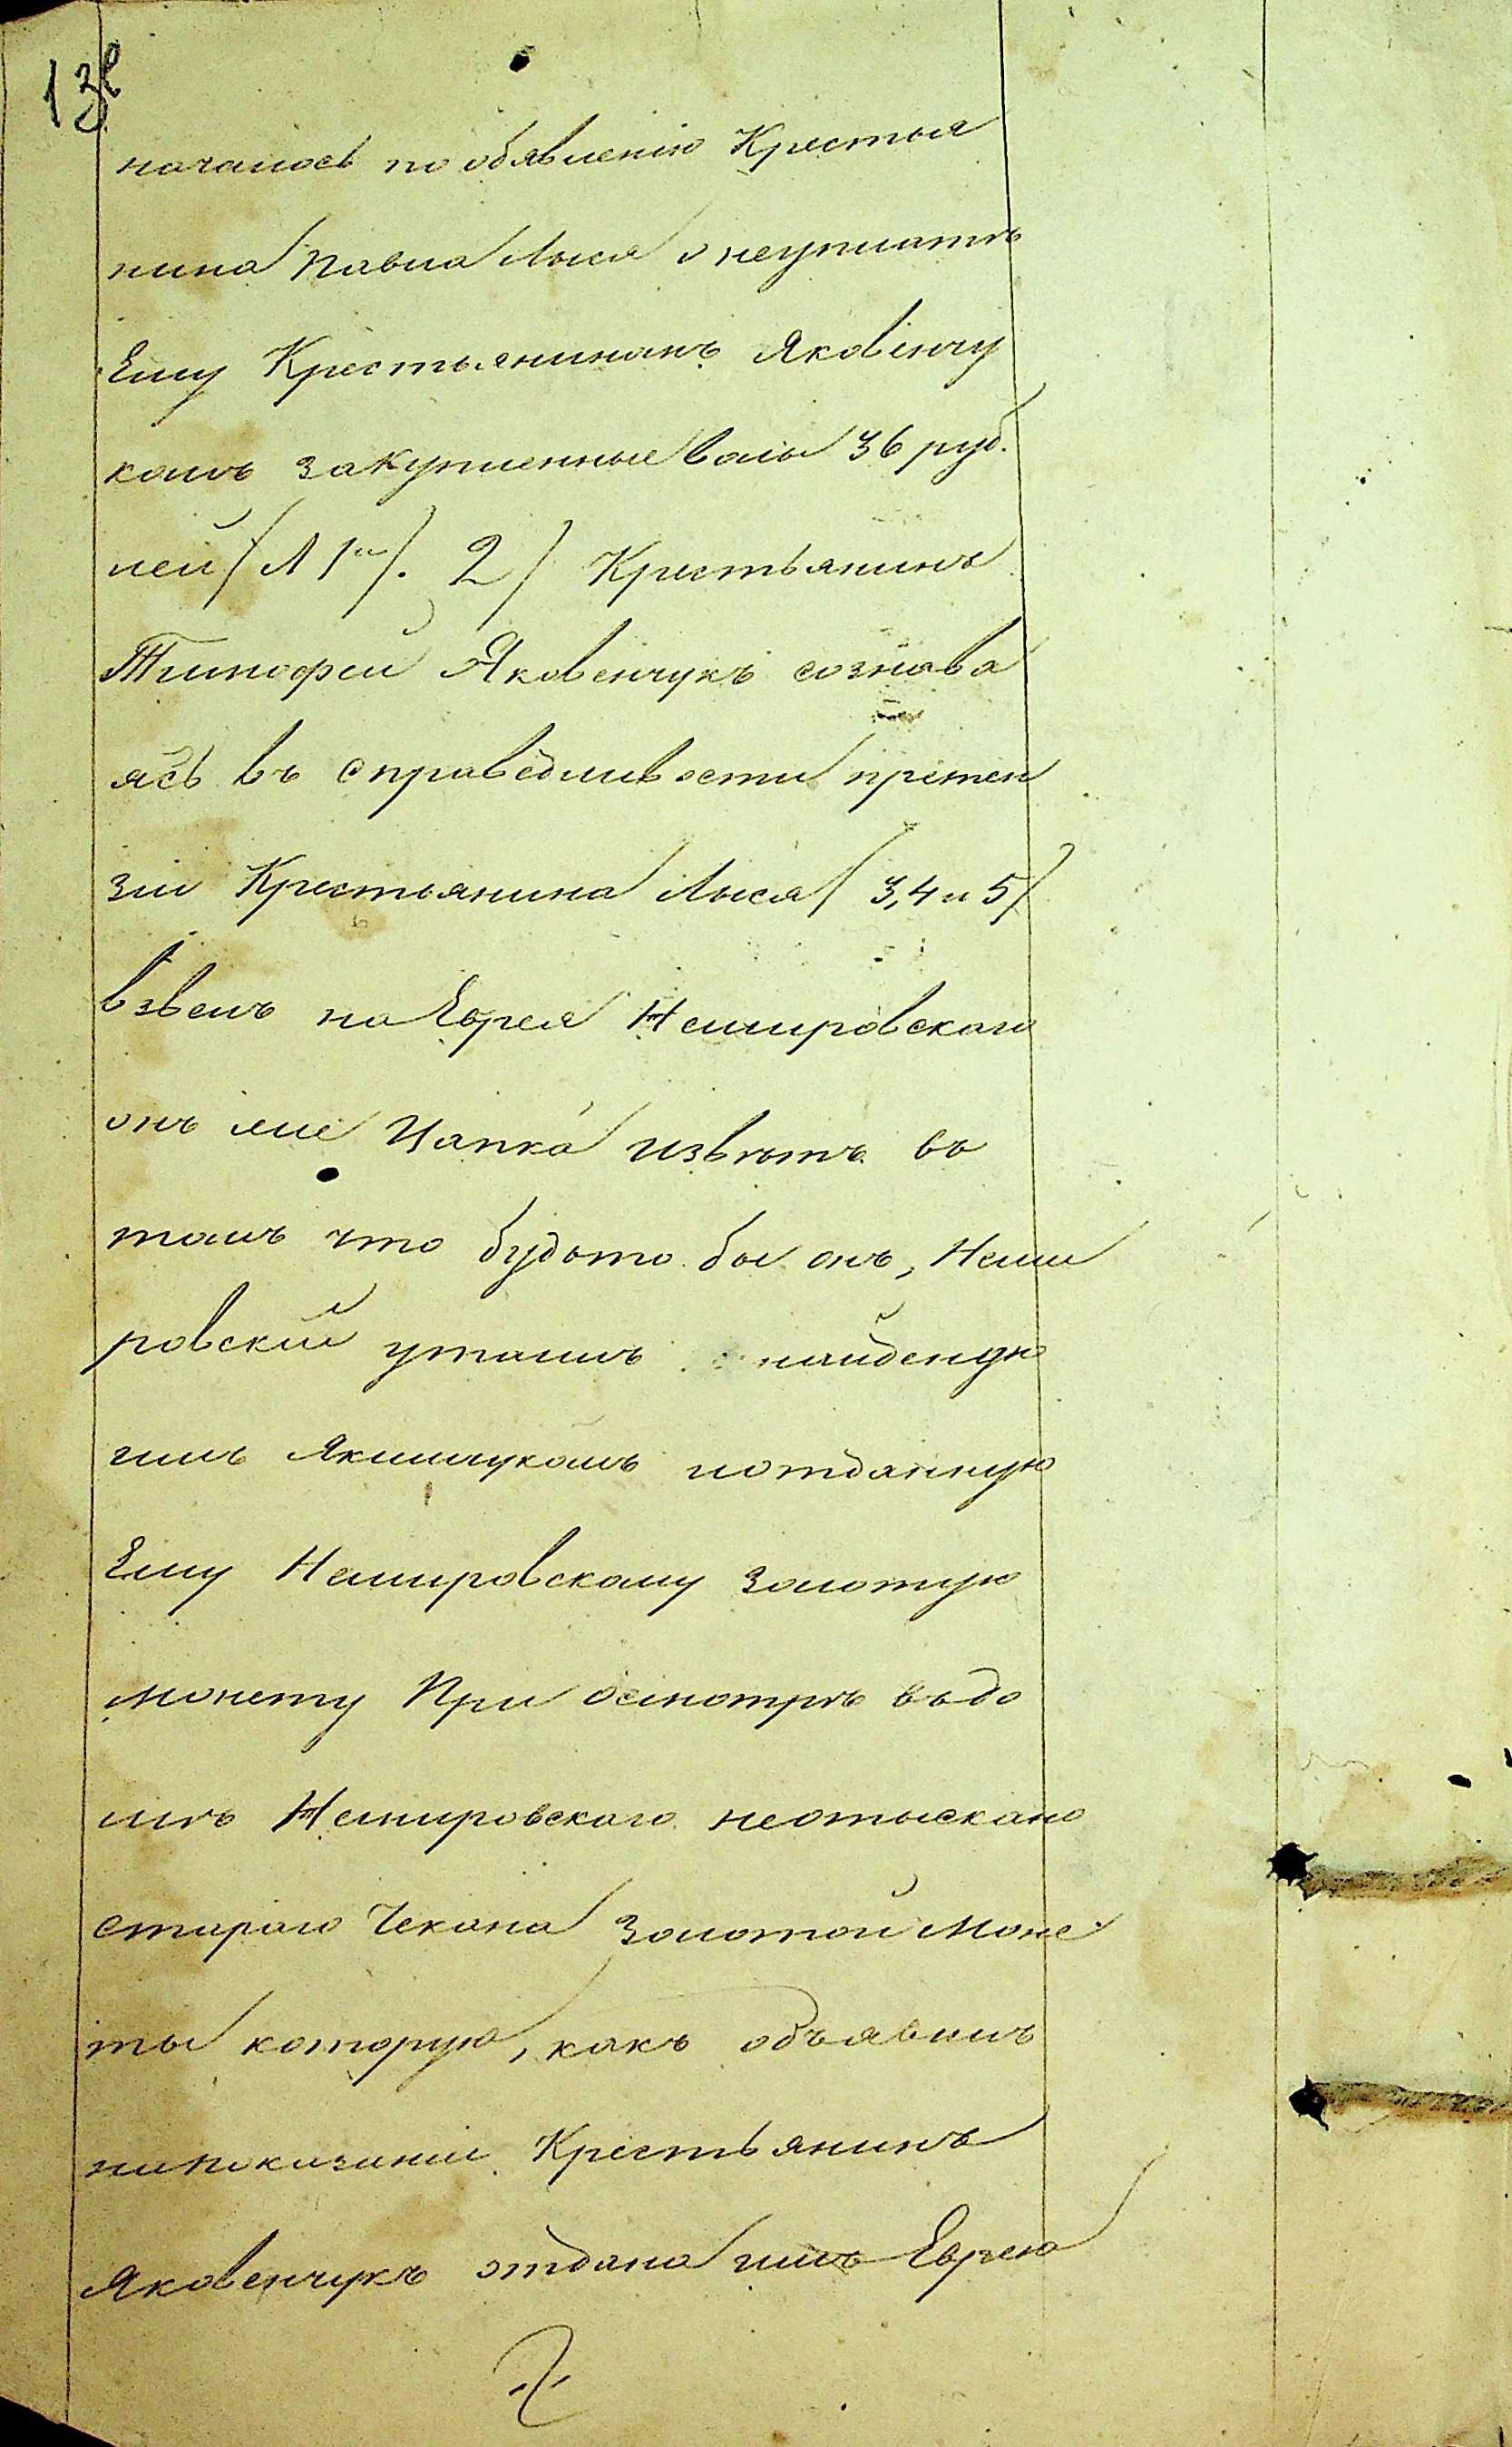 13
началось по обявленію Крестья
нина Павла Лыся о неуплатѣ
Ему Крестьяниномъ Яковенчу
комъ за купленные волы 36 руб
лей (Л 1й). 2) Крестьянинъ
Тимофей Яковенчукъ сознава
ясь въ справедливости претен
зіи Крестьянина Лыся (3, 4 и 5)
взвелъ на Еврея Немировскаго
онъ же Цапка извѣтъ въ
томъ что будьто бы онъ, Неми
ровскій утаилъ найденую
имъ Якимчукомъ и отданную
Ему Немировскому золотую
монету При осмотрѣ въ до
мѣ Немировскаго не отыскано
стараго Чекана Золотой Моне
ты которую, какъ объявилъ
на показаніи Крестьянинъ
Яковенчукъ отдана имъ Еврею